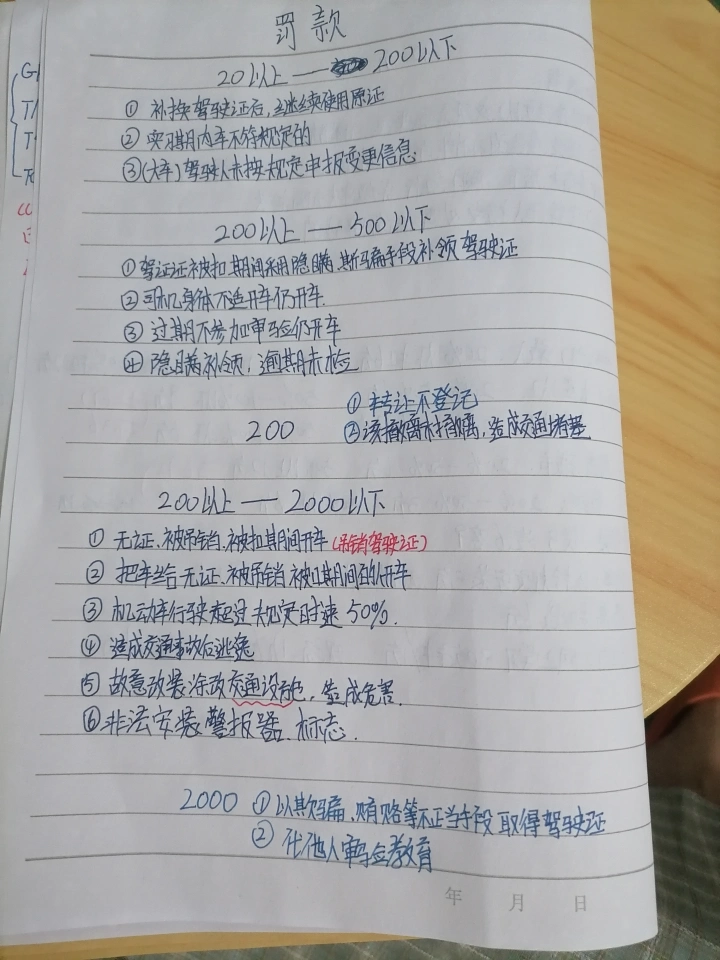 罚款
20以上 — 200以下
① 补换驾驶证后,继续使用原证
② 实习期内车不符规定的
③(大车)驾驶人未按规定申报变更信息
200以上 — 500以下
① 驾证证被扣期间采用隐瞒、欺骗手段补领驾驶证
② 司机身体不适开车仍开车.
③ 过期不参加审验仍开车
④ 隐瞒补领,逾期未检
200
① 转让不登记
② 该撤离未撤离,造成交通堵塞
200以上 — 2000以下
① 无证、被吊销、被扣期间开车(吊销驾驶证)
② 把车给无证、被吊销、被扣期间的人开车
③ 机动车行驶超过规定时速 50%.
④ 造成交通事故后逃逸
⑤ 故意改装涂改交通设施,造成危害.
⑥ 非法安装警报器、标志.
2000 ① 以欺骗、贿赂等不正当手段取得驾驶证
② 代他人审验教育
年 月 日
G
T
T